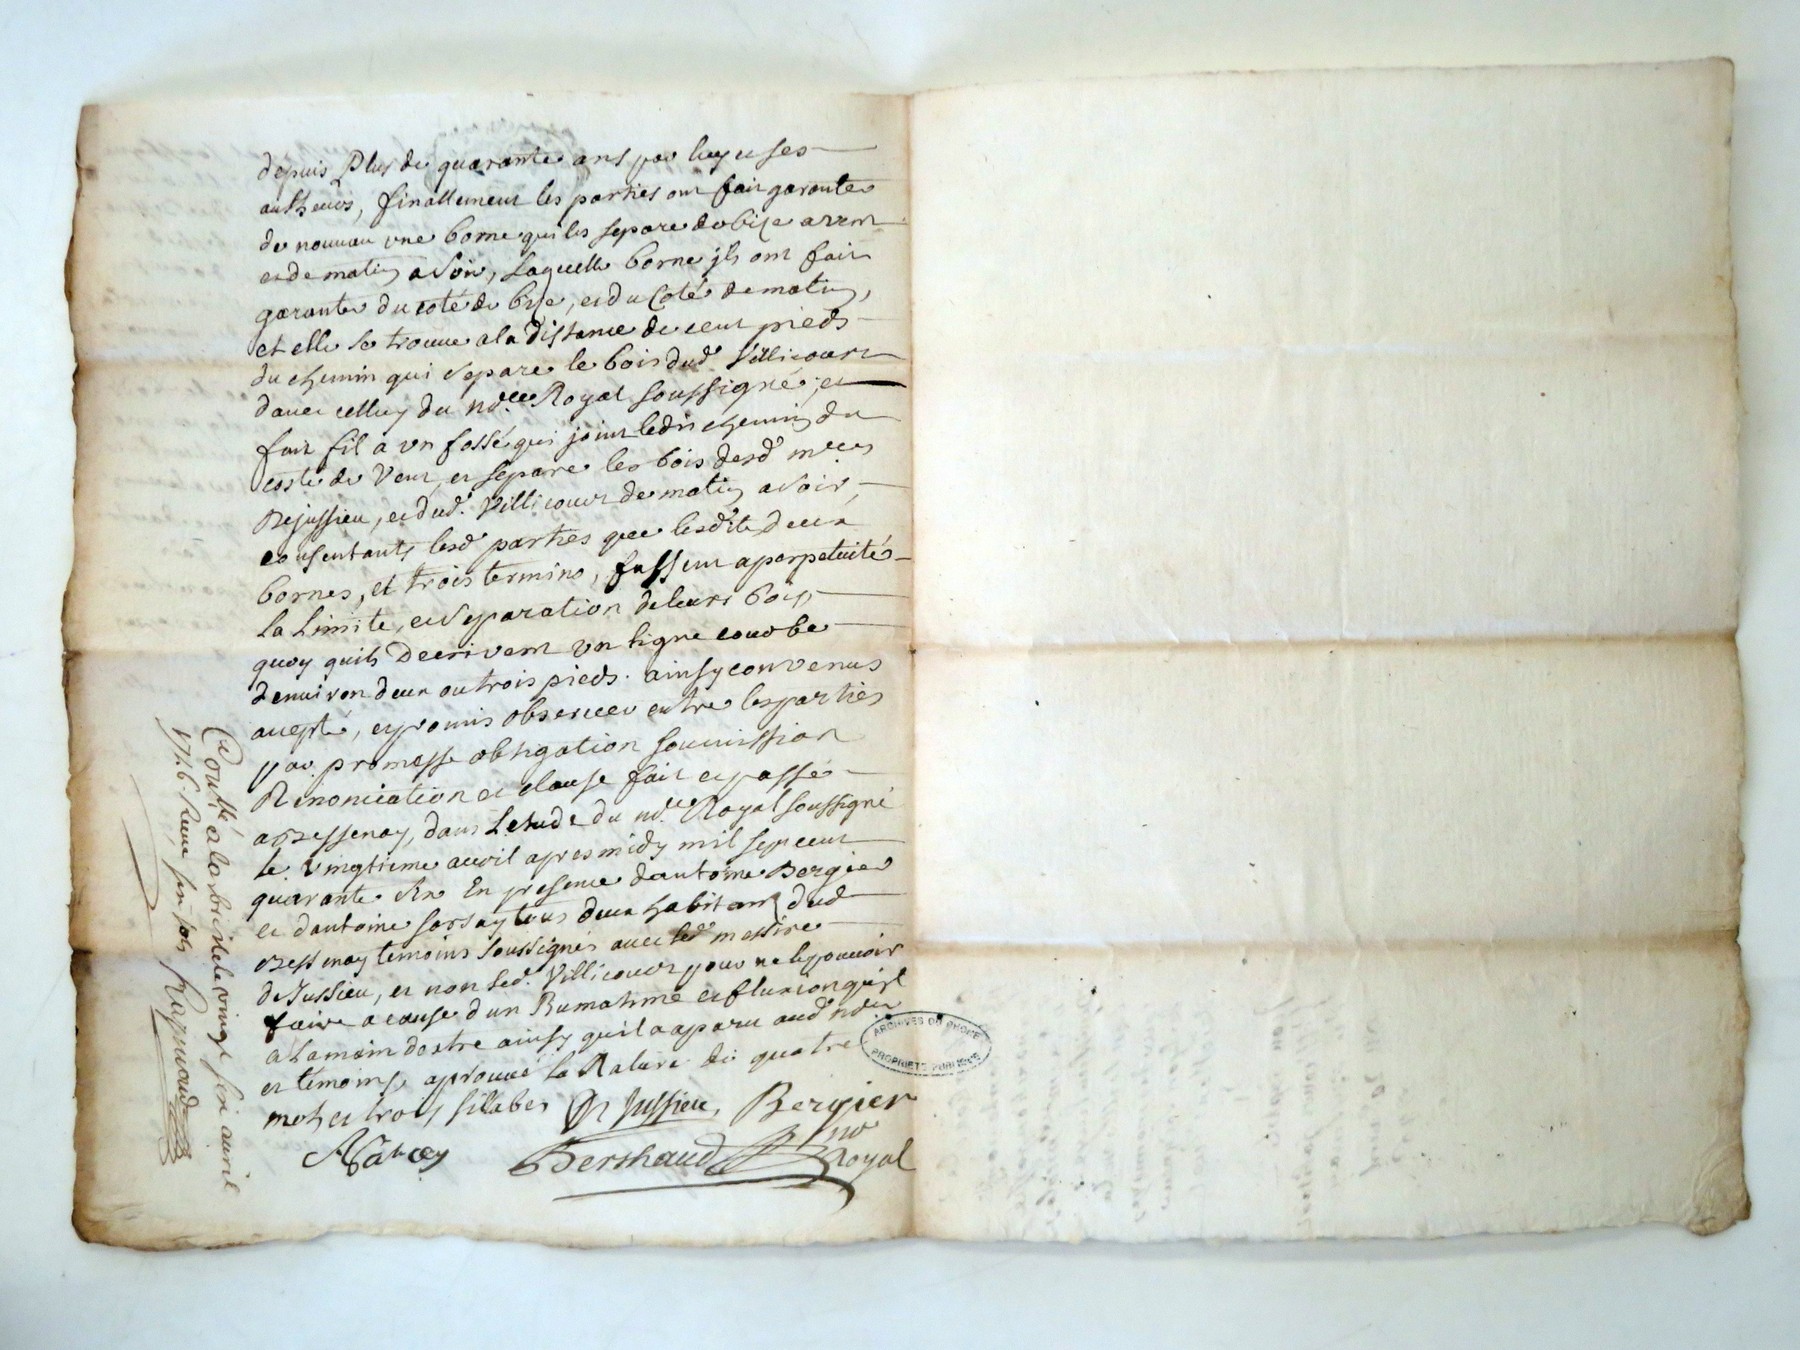 depuis Plus de quarante ans par luy et ses
autheurs, finallement les parties ont fait garante
de nouveau une borne qui les separe de bise a vent
et de matin a soir, Laquelle borne jls ont fait
garante du coté de bise, et du Coté de matin,
et elle se trouve a la distance de cent pieds
du chemin qui separe le bois dud. Villicourt
davec celluy du nore. Royal soussigné, et
fait fil a un fossé qui joint ledit chemin du
costé de Vent, et separe les bois desd.
Dejussieu, et dud. Villicourt de matin a soir,
consentants lesd. parties que lesdite deux
bornes, et trois termins, fassent a perpetuité
la Limite, et separation de leurs bois,
quoy quils Decrivent un ligne courbe
denviron deux ou trois pieds. ainsy convenus
accepté, et promis observer entre les parties
par promesse obligation soumission
Renonciation et clause fait et passé
a Bessenay, dans Letude du nore. Royal soussigné
le vingtieme avril apres midy mil sept cent
quarante six En presence dantoine Bergier
et dantoine sarsay tous deux habitants dud.
Bessenay temoins soussignés avec led. messire
de Jussieu, et non led. Villicourt pour ne le pouvoir
faire a cause d'un Rumatisme et fluxion quil
a la main dextre ainsy quil a aparu aud. nore.
et temoins, aprouvé la Rature de quatre
mots et trois sillabes De Jussieu, Bergier
Berthaud
Royal
no
Controllé a la bresle le vingt six avril
1746. Recu six sols Raymond
ARCHIVES DU RHONE
PROPRIETE PUBLIQUE